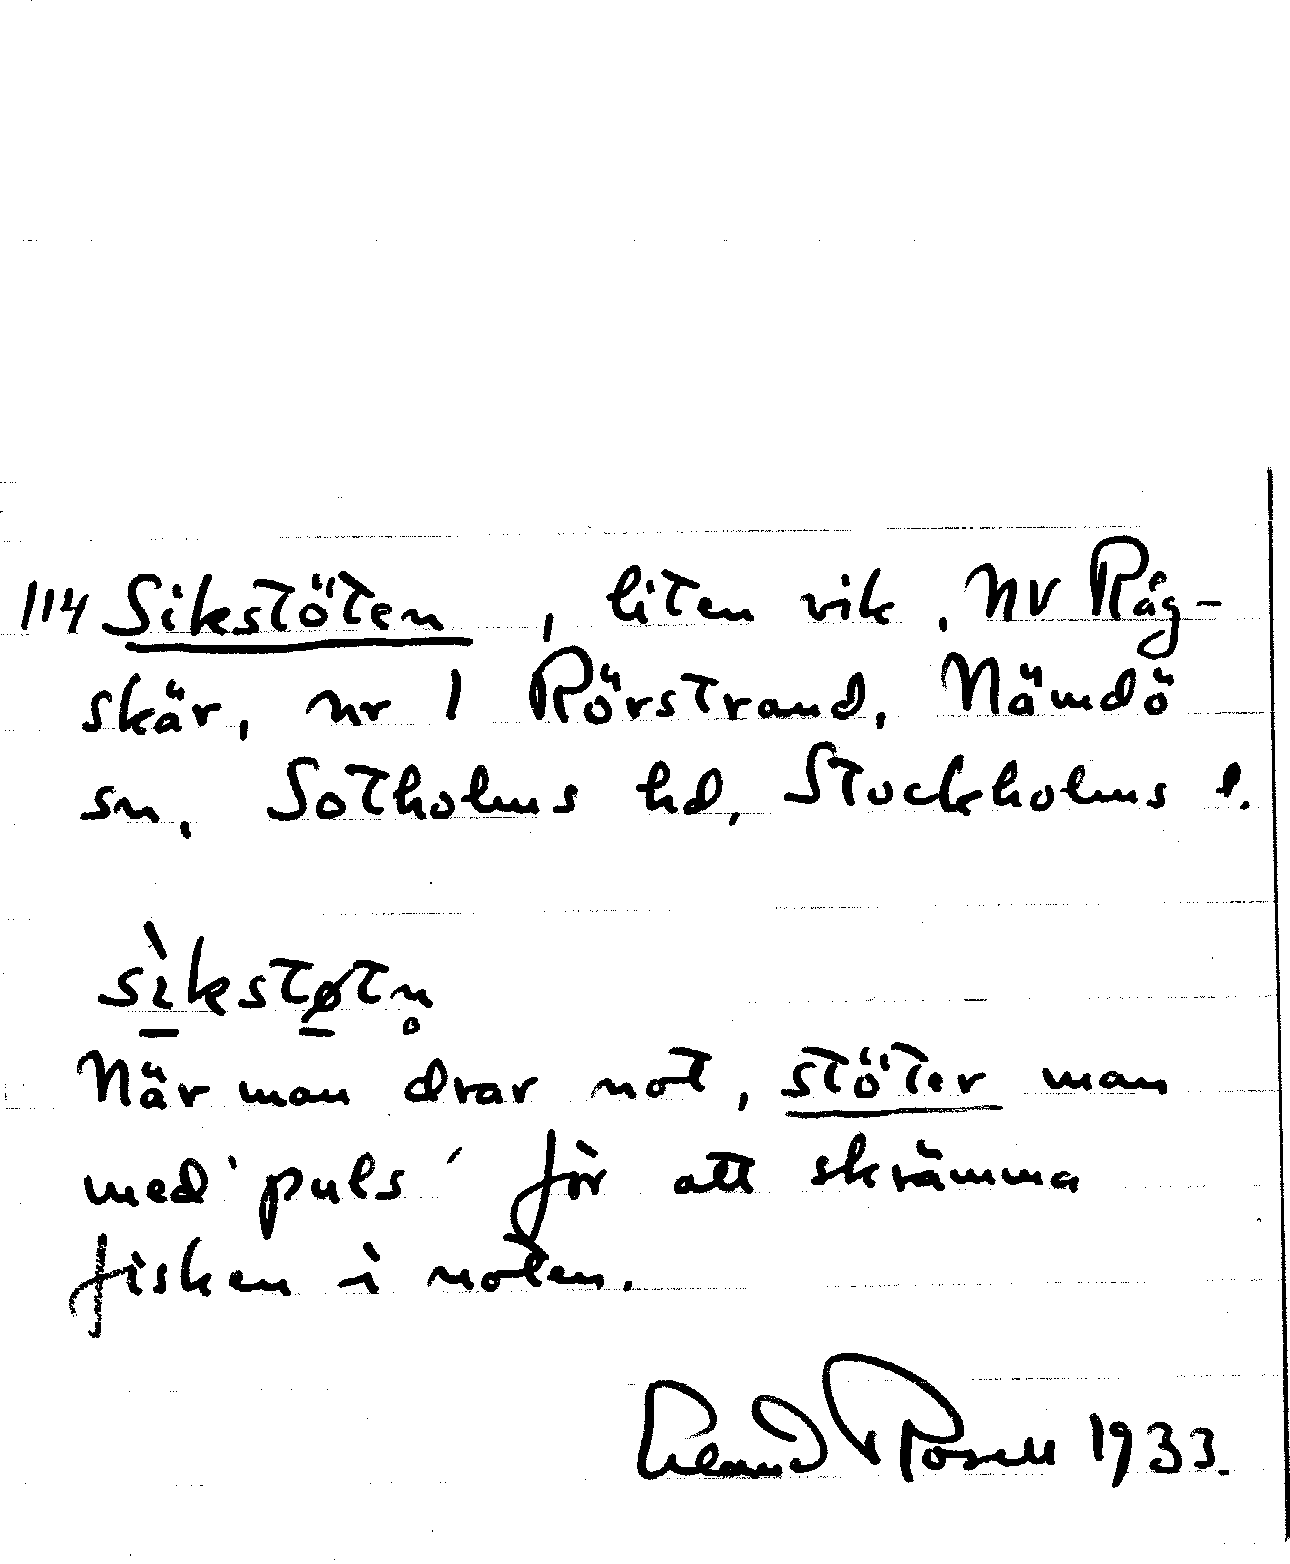 114 Sikstöten, liten vik, NV Råg-
skär, nr 1 Rörstrand, Nämdö
sn, Sotholms hd, Stockholms l.
sìkstøtn̥
När man drar not, stöter man
med 'puls' för att skrämma
fisken i noten.
Rosell 1933.